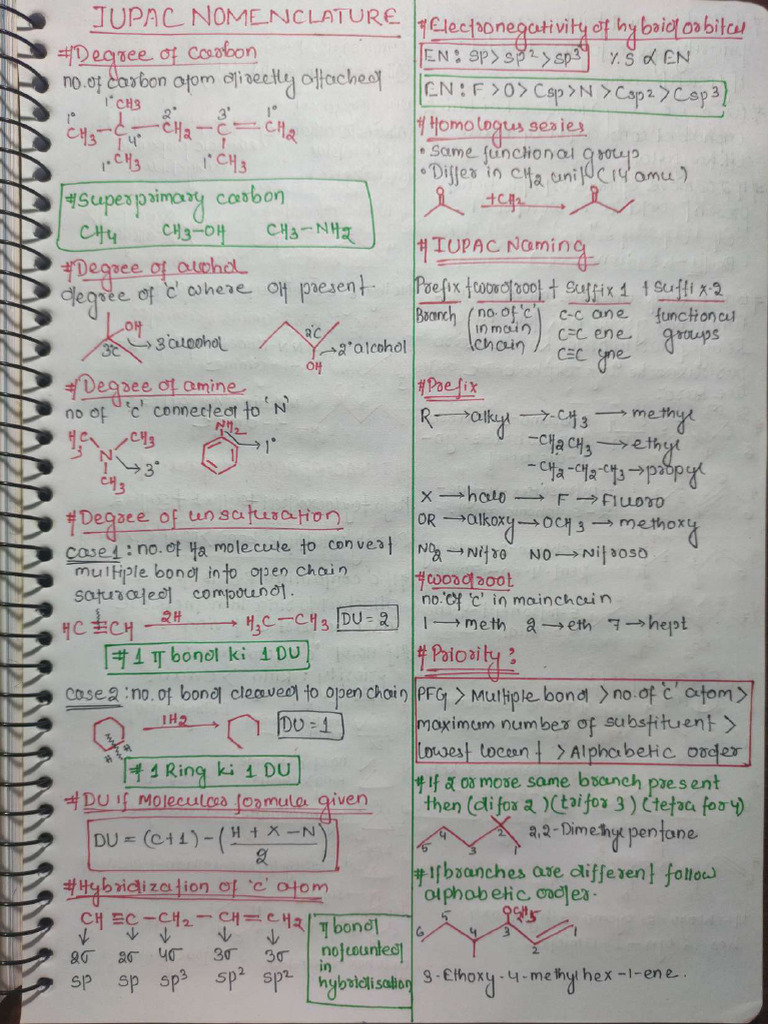 IUPAC NOMENCLATURE
#Degree of carbon
no. of carbon atom directly attached
1° CH3
1° 2° 3° 1°
CH3-C-CH2-C=CH2
4°
1° CH3 1° CH3
#Superprimary carbon
CH4 CH3-OH CH3-NH2
#Degree of alcohol
degree of 'c' where OH present.
OH
3°C →3°alcohol
2°C
→2°alcohol
OH
#Degree of amine
no of 'c' connected to 'N'
H3C CH3
N →3°
CH3
NH2
→1°
#Degree of unsaturation
case1: no. of H2 molecule to convert
multiple bond into open chain
saturated compound.
HC≡CH 2H→ H3C-CH3 DU=2
#1 π bond ki 1 DU
case2: no. of bond cleaved to open chain
1H2→ DU=1
H H
#1 Ring ki 1 DU
#DU if Molecular formula given
DU = (C+1) - (H + X - N / 2)
#Hybridization of 'c' atom
CH≡C-CH2-CH=CH2
2σ 2σ 4σ 3σ 3σ
sp sp sp3 sp2 sp2
π bond
not counted
in
hybridisation
#Electronegativity of hybrid orbital
EN: sp>sp2>sp3 %S ∝ EN
EN: F>O>Csp>N>Csp2>Csp3
#Homologus series
• Same functional group
• Differ in CH2 unit (14 amu)
+CH2→
#IUPAC Naming
Prefix + wordroot + Suffix 1 + Suffix-2
Branch (no. of 'c' in main chain) C-C ane functional
C=C ene groups
C≡C yne
#Prefix
R→alkyl→-CH3→methyl
-CH2CH3→ethyl
-CH2-CH2-CH3→propyl
X→halo→F→Fluoro
OR→alkoxy→OCH3→methoxy
NO2→Nitro NO→Nitroso
#wordroot
no. of 'c' in mainchain
1→meth 2→eth 7→hept
#Priority:
PFG > Multiple bond > no. of 'c' atom >
maximum number of substituent >
lowest locant > Alphabetic order
#If 2 or more same branch present
then (di for 2) (tri for 3) (tetra for 4)
5 4 3 2 1 2,2-Dimethyl pentane
#If branches are different follow
alphabetic order.
OC2H5
6 5 4 3 2 1
3-Ethoxy-4-methylhex-1-ene.